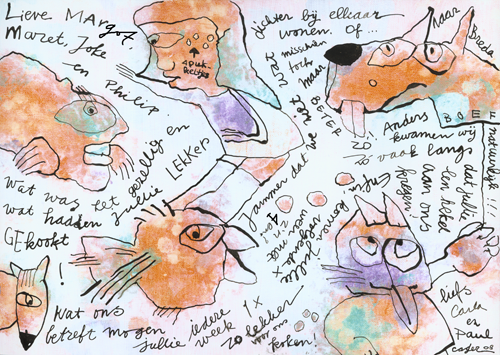 Lieve Margot
Maret, Joke
en Philip.
Wat was het gezellig en
LEKKER
wat hadden jullie
GEKookt!
Jammer dat we
niet
dichter bij elkaar
wonen. Of...
misschien
toch
maar
BETER
zo!
Naar
Breda
BOEF
Anders
kwamen wij
zo vaak langs
dat jullie
een hekel
aan ons
kregen!
natuurlijk!!!
Wat ons
betreft mogen
jullie iedere
week 1x
zo lekker
voor ons
koken!
komen jullie
volgende x
liefs
Carla
en
Paul